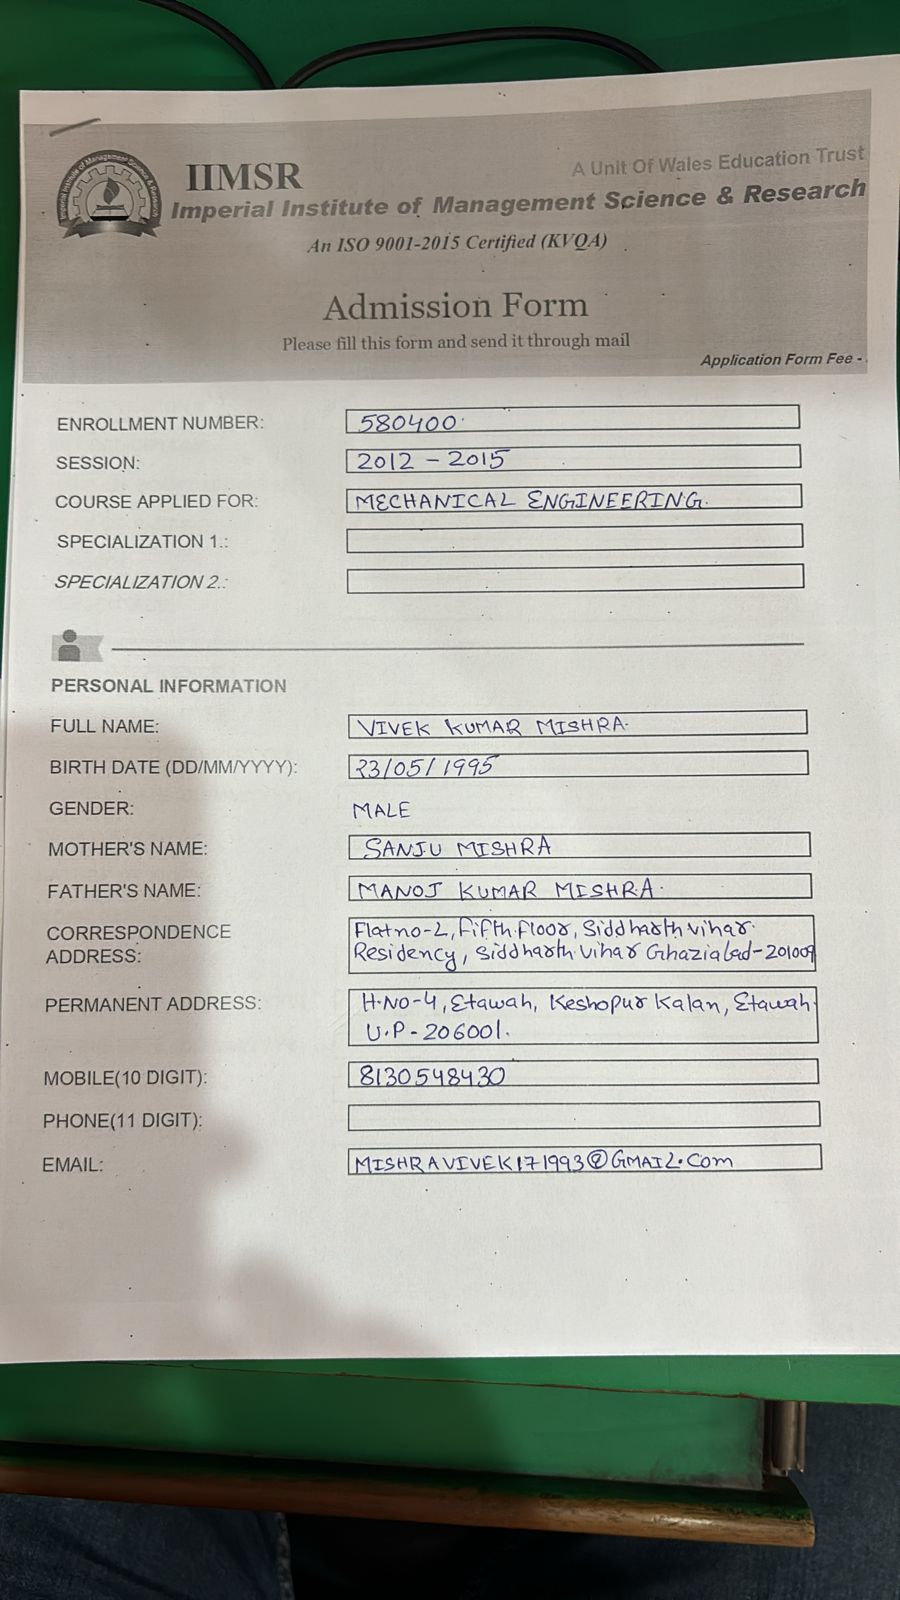 IIMSR
A Unit Of Wales Education Trust
Imperial Institute of Management Science & Research
Imperial Institute of Management Science & Research
An ISO 9001-2015 Certified (KVQA)
Admission Form
Please fill this form and send it through mail
Application Form Fee -
ENROLLMENT NUMBER: 580400
SESSION: 2012 - 2015
COURSE APPLIED FOR: MECHANICAL ENGINEERING.
SPECIALIZATION 1.:
SPECIALIZATION 2.:
PERSONAL INFORMATION
FULL NAME: VIVEK KUMAR MISHRA.
BIRTH DATE (DD/MM/YYYY): 23/05/1995
GENDER: MALE
MOTHER'S NAME: SANJU MISHRA
FATHER'S NAME: MANOJ KUMAR MISHRA.
CORRESPONDENCE ADDRESS: Flat no-2, Fifth floor, Siddharth vihar
Residency, Siddharth vihar Ghaziabad-201009
PERMANENT ADDRESS: H.NO-4, Etawah, Keshopur Kalan, Etawah
U.P-206001.
MOBILE(10 DIGIT): 8130548430
PHONE(11 DIGIT):
EMAIL: MISHRAVIVEK171993@GMAIL.Com